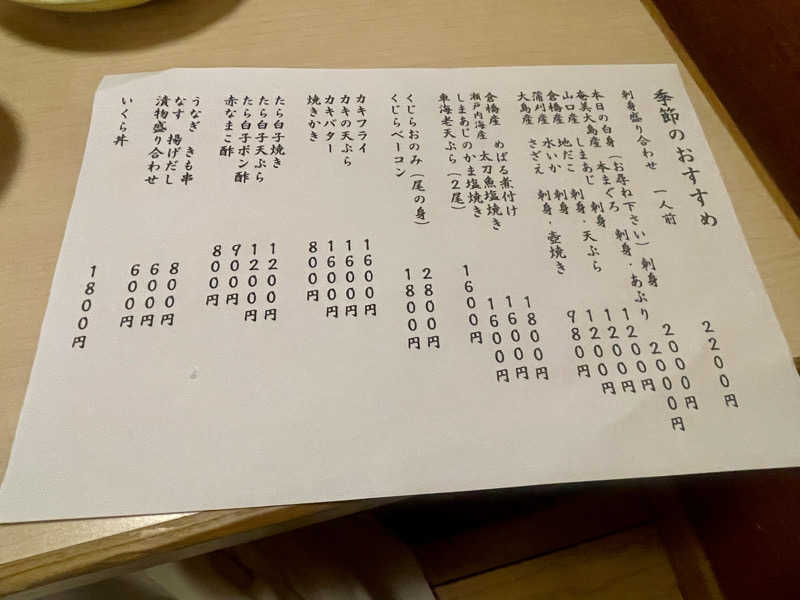 季節のおすすめ
刺身盛り合わせ 一人前 2200円
本日の白身(お尋ね下さい) 刺身 2000円
奄美大島産 本まぐろ 刺身・あぶり 2000円
山口産 しまあじ 刺身 1200円
倉橋産 地だこ 刺身・天ぷら 1200円
蒲刈産 水いか 刺身 1200円
大島産 さざえ 刺身・壺焼き 980円
倉橋産 めばる煮付け 1800円
瀬戸内海産 太刀魚塩焼き 1600円
しまあじのかま塩焼き 1600円
車海老天ぷら(2尾) 1600円
くじらおのみ(尾の身) 2800円
くじらベーコン 1800円
カキフライ 1600円
カキの天ぷら 1600円
カキバター 1600円
焼きかき 800円
たら白子焼き 1200円
たら白子天ぷら 1200円
たら白子ポン酢 900円
赤なまこ酢 800円
うなぎ きも串 800円
なす 揚げだし 600円
漬物盛り合わせ 600円
いくら丼 1800円